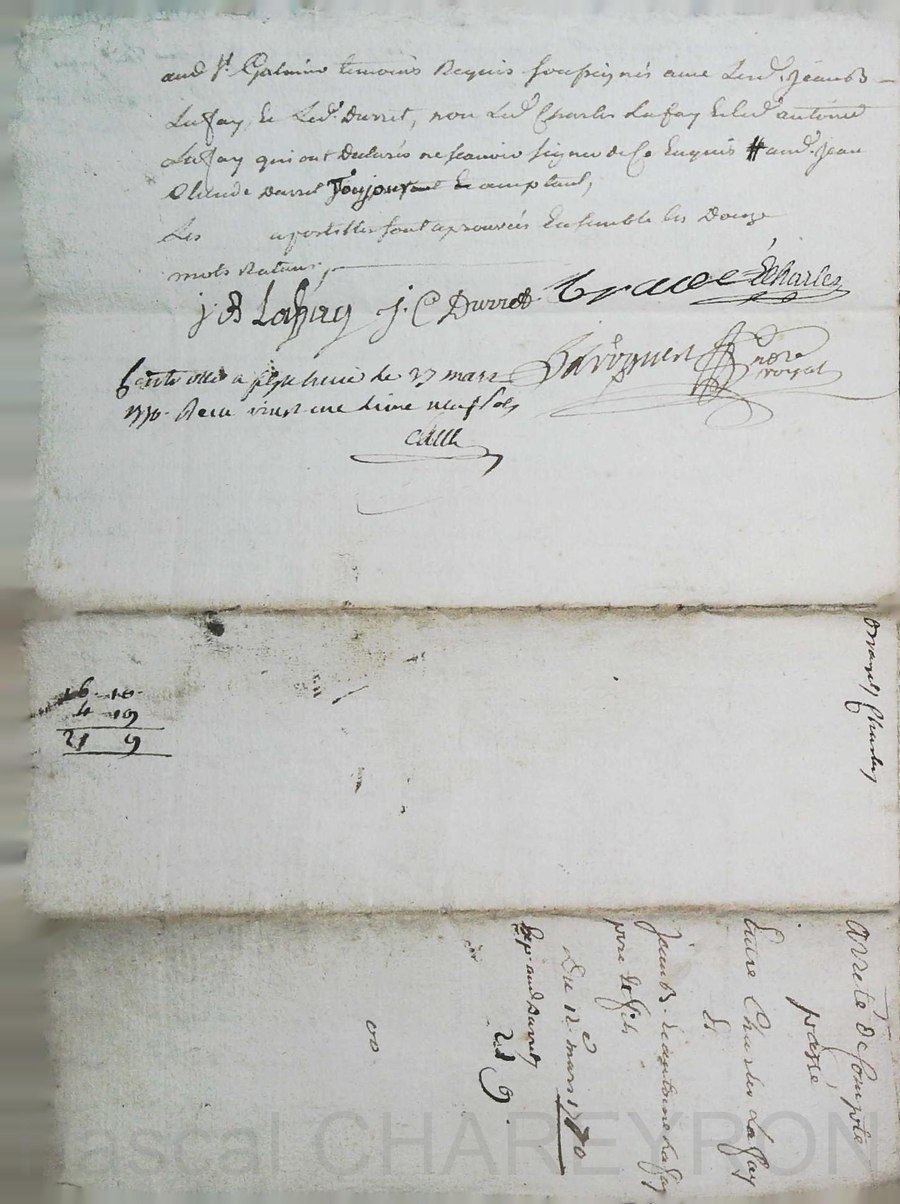 aud St. Galmier temoins Requis soussignés avec Led. JeanB
Lafay, Et Led. Durret, non Led. Charles Lafay Et led. antoine
Lafay qui ont declarés ne scavoir signer de Ce Enquis # aud. Jean
Claude Durret
Les apostilles sont aprouvées Ensemble les Douze
mots
J B Lafay J. C Durret Charles
no.re royal
a le 27 mars
1770. Recu vingt une livre neuf sols
16 10
4 19
21 9
Charles
arreté de Compte
passé
Entre Charles Lafay
Et
JeanB. Et antoine Lafay
pere Et fils
Du 12 mars 1770
Exp. aud Durret
21 9
Pascal CHAREYRON